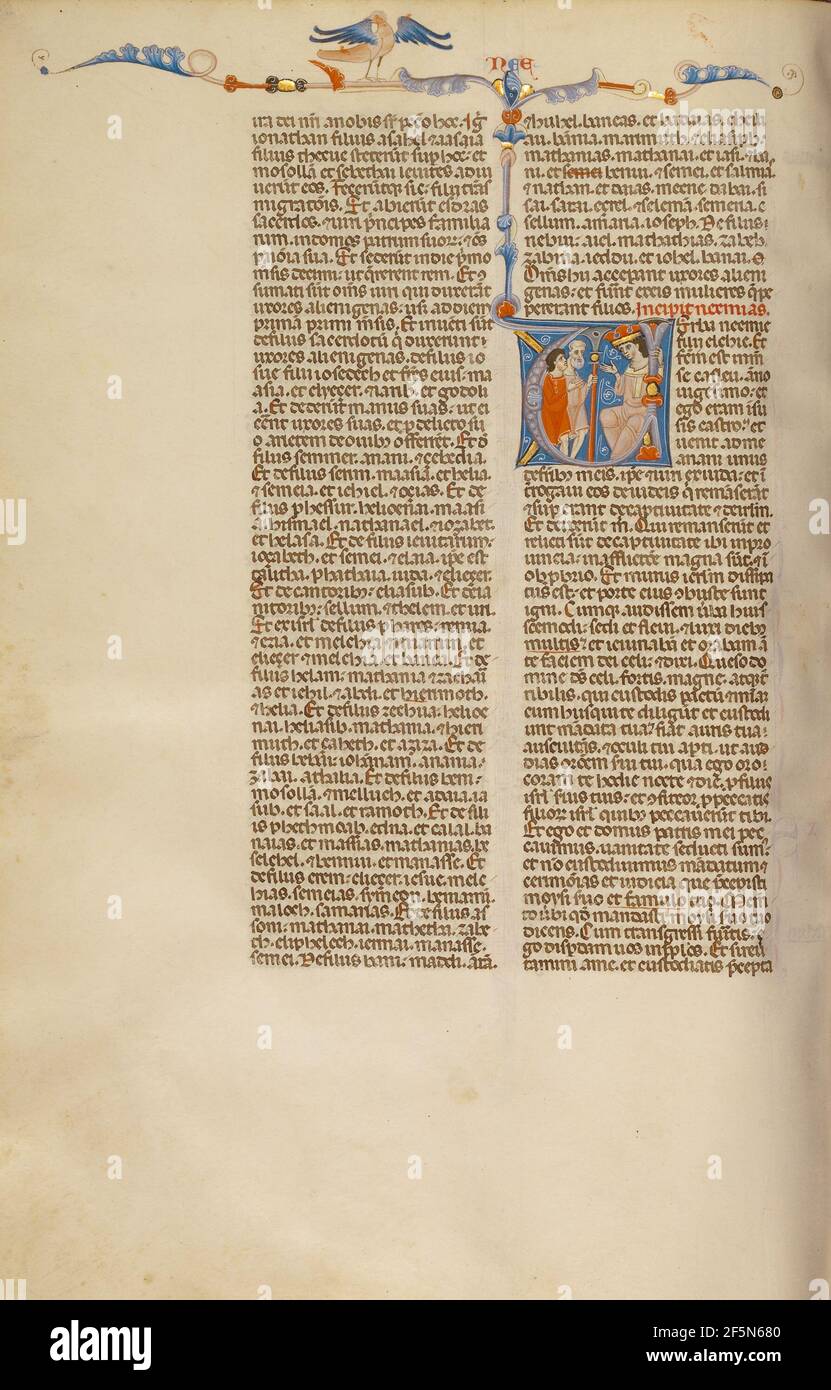 NEE
ira dei nri a nobis sr pcco hoc. Igr
ionathan filius asahel & aasia
filius thecue steterunt sup hoc. et
mosollam et sebethai levites adiu
verunt eos. Feceruntqz sic filii tras
migratois. Et abierunt esdras
sacerdos. & viri pncipes familia
rum. in domos patrum suor. & oes
p noia sua. Et sederunt in die pmo
msis decimi. ut qrerent rem. Et 9
sumati sut oms viri qui duxerat
uxores alienigenas. usqz ad diem
primam primi msis. Et inventi sut
de filiis sacerdotu q duxerunt
uxores alienigenas. de filiis io
sue filii iosedech et frs eius. ma
asia. et eliezer. & iarib. et godoli
a. Et dederut manus suas. ut ei
cerent uxores suas. et p delicto su
o arietem de ovibz offerrent. Et d
filiis semmer. anani. & zebedia.
Et de filiis serim. maasia. et helia.
& semeia. et iehiel. & ozias. Et de
filiis phessur. helioenai. maasi
a. hismael. nathanael. & iozabet.
et helasa. Et de filiis levitarum.
iozabeth. et semei. & elaia. ipse est
galitha. phathaia. iuda. & eliezer.
Et de cantoribz. eliasub. Et de ia
nitoribz. sellum. & thelem. et uri.
Et ex isrl de filiis phares. remia.
& ezia. et melchia
eliezer. & melchia. et banea. Et de
filiis helam. mathania. & zachari
as. et iehil. & abdi. et hierimoth.
& helia. Et de filiis zethua. helioe
nai. heliasib. mathania. & hieri
muth. et zabeth. et aziza. Et de
filiis bebai. iohannam. anania.
zabai. athalia. Et de filiis beni.
mosollam. & melluch. et adaia. ia
sub. et saal. et ramoth. Et de fili
is phethmoab. edna. et calal. ba
naias. et massias. mathanias. be
selehel. & bennui. et manasse. Et
de filiis erem. eliezer. iesue. melc
hias. semeias. symeon. beniamin.
maloch. samarias. Et de filiis as
som. mathanai. mathetha. zabe
th. eliphelech. iermai. manasse.
semei. De filiis bani. maddi. amra.
& huhel. baneas. et badaias. cheili
au. bania. marimuth. & eliasiph.
mathanias. mathanai. et iasi. & ba
ni. et bennui. & semei. et salmia.
& nathan. et daias. mecne dabai. si
sai. sarai. ezrel. & selemia. semeria. 
sellum. amaria. ioseph. De filiis
nebui. aiel. mathathias. zabeh.
zabina. ieddu. et iohel. banai.
Oms hii acceperant uxores alieni
genas. et fuerut ex eis mulieres q pe
pererant filios. Incipit neemias.
Verba neemie
filii elchie. Et
fcm est in m
se casleu. ano
vigesimo. et
ego eram i su
sis castro. et
venit ad me
anani unus
de fribus meis. ipse & viri ex iuda. et i
terrogavi eos de iudeis q remaserat
& supant de captivitate & de ierlm.
Et dixerut m. Qui remanserut et
relicti sut de captivitate ibi in pro
vincia. in afflictione magna sut. & i
obpbrio. Et murus ierlm dissipa
tus est. et porte eius 9buste sunt
igni. Cumqz audissem vba huius
scemodi. sedi et flevi. & luxi diebz
multis. et ieiunaba et oraba an
te faciem dei celi. & dixi. Queso do
mine ds celi. fortis. magne. atqz t
ribilis. qui custodis pactu & miam
cum his qui te diligut et custodi
unt madata tua. fiat auris tua
auscultans. & oculi tui apti. ut audi
as oroem servi tui. qua ego oro
coram te hodie nocte & die. p filiis
isrl servis tuis. et 9fiteor p peccatis
filior isrl. quibz peccaverut tibi.
Et ego et domus patris mei pecc
avimus. vanitate seducti sum.
et no custodivimus madatum &
cerimonias et iudicia que pcepisti
moysi servo et famulo tuo. Mem
to vbi qd mandasti moysi servo tuo
dicens. Cum transgressi fueritis. e
go dispdam vos in pplos. Et si rev
tamini ad me. et custodiatis pcepta
alamy
Image ID: 2F5N680
www.alamy.com